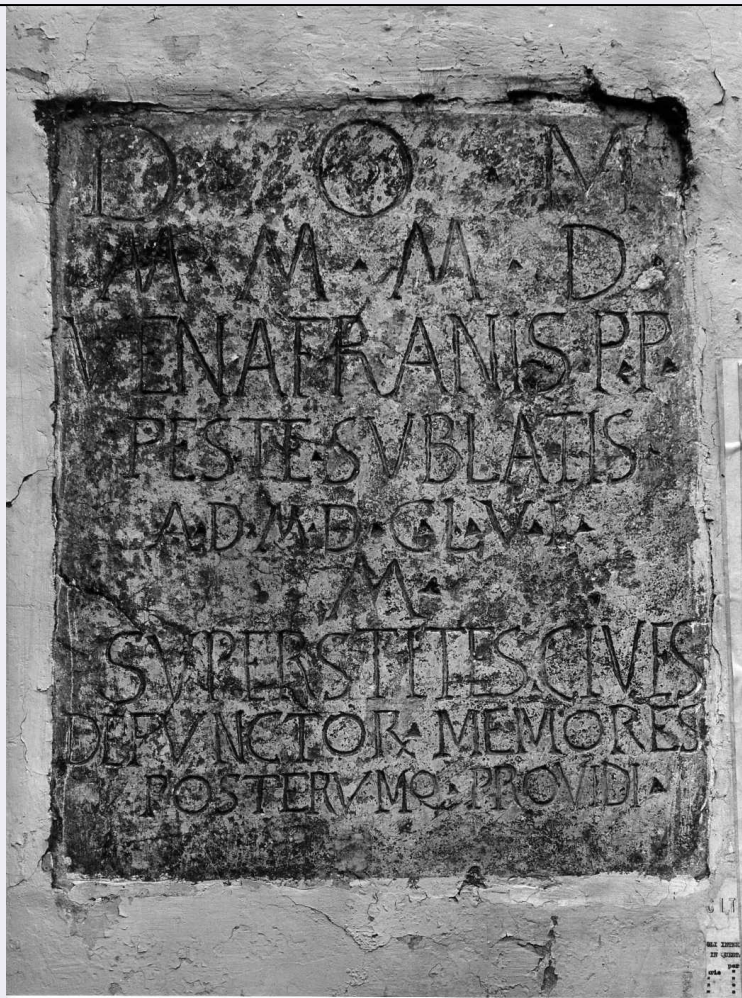 D · O · M
M · M · M · D ·
VENAFRANIS · P · P ·
PESTE · SVBLATIS ·
A · D · M · D · C · L · V · I ·
M ·
SVPERSTITES · CIVES
DEFVNCTOR · MEMORES
POSTERVMQ · PROVIDI ·